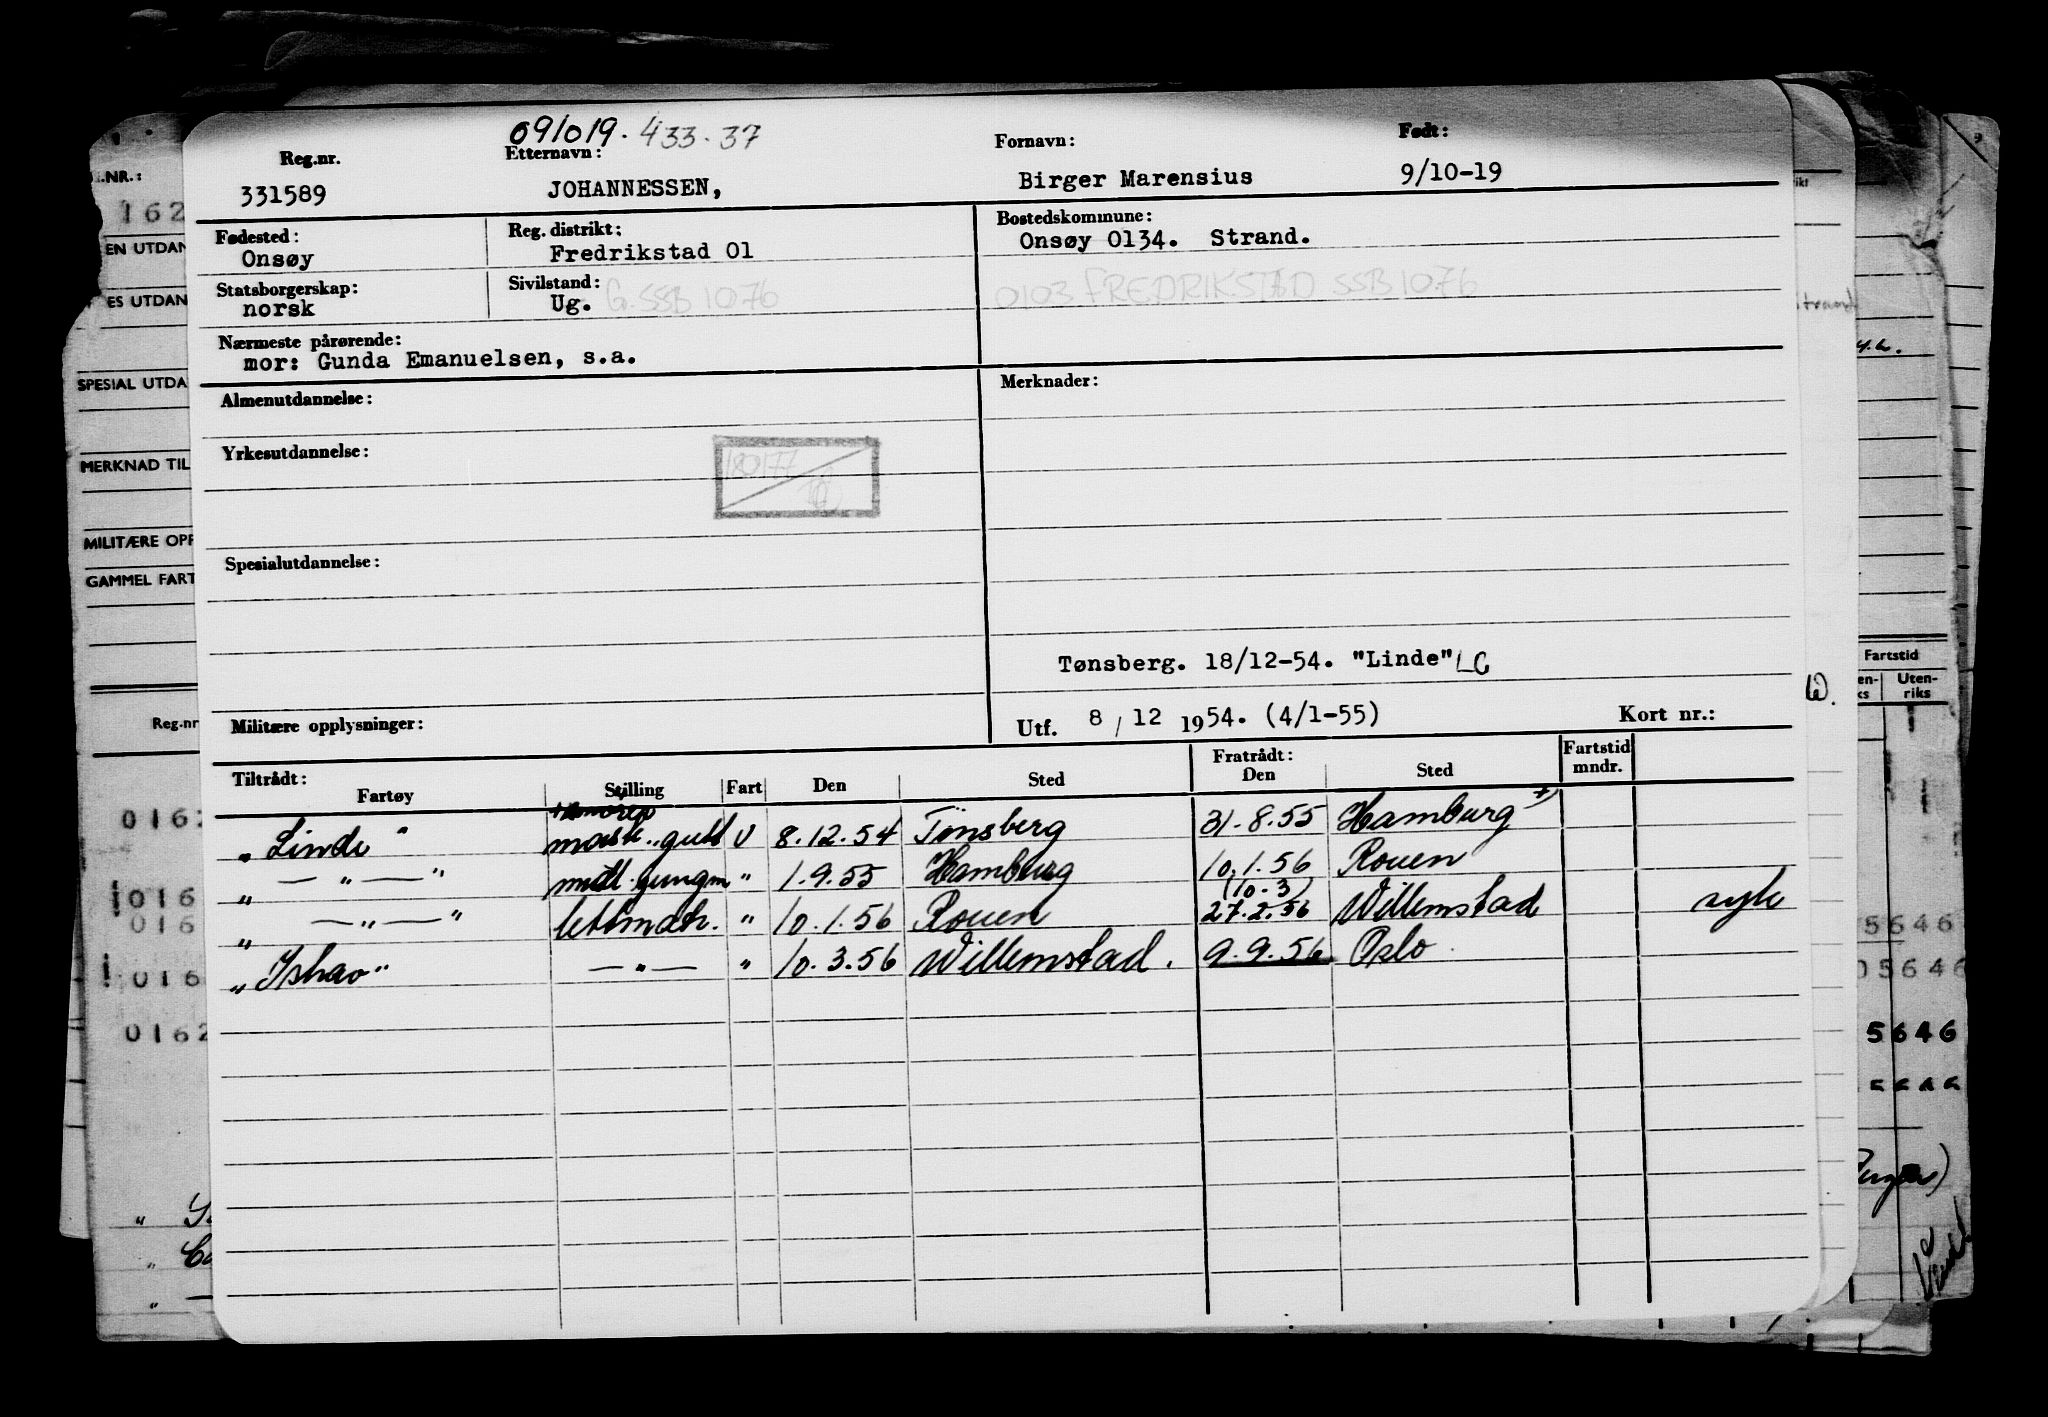 091019. 433.37
Reg.nr. Etternavn: Fornavn: Født:
331589 JOHANNESSEN, Birger Marensius 9/10-19
Fødested: Reg. distrikt: Bostedskommune:
Onsøy Fredrikstad 01 Onsøy 0134. Strand.
Statsborgerskap: Sivilstand:
norsk Ug. G. SSB 1076 0103 FREDRIKSTAD SSB 1076
Nærmeste pårørende:
mor: Gunda Emanuelsen, s.a.
Almenutdannelse: Merknader:
Yrkesutdannelse:
180177
Spesialutdannelse:
Tønsberg. 18/12-54. "Linde" LC
Militære opplysninger: Utf. 8 / 12 1954. (4/1-55) Kort nr.:
Tiltrådt: Fratrådt: Fartstid
Fartøy Stilling Fart Den Sted Den Sted mndr.
"Linde" mask. gutt U 8.12.54 Tønsberg 31.8.55 Hamburg +
" — " — " motl. jungm " 1.9.55 Hamburg 10.1.56 Rouen
(10-3)
" — " — " lettmatr. " 10.1.56 Rouen 27.2.56 Willemstad syk
"Ishav" — " — " 10.3.56 Willemstad. 9.9.56 Oslo.
.NR.:
162
EN UTDAN
ES UTDAN
SPESIAL UTDA
MERKNAD TIL
MILITÆRE OPP
GAMMEL FART
Reg.nr
0162
016
016
016
0162
Fartstid
Uten-
riks
5646
05646
5646
5646